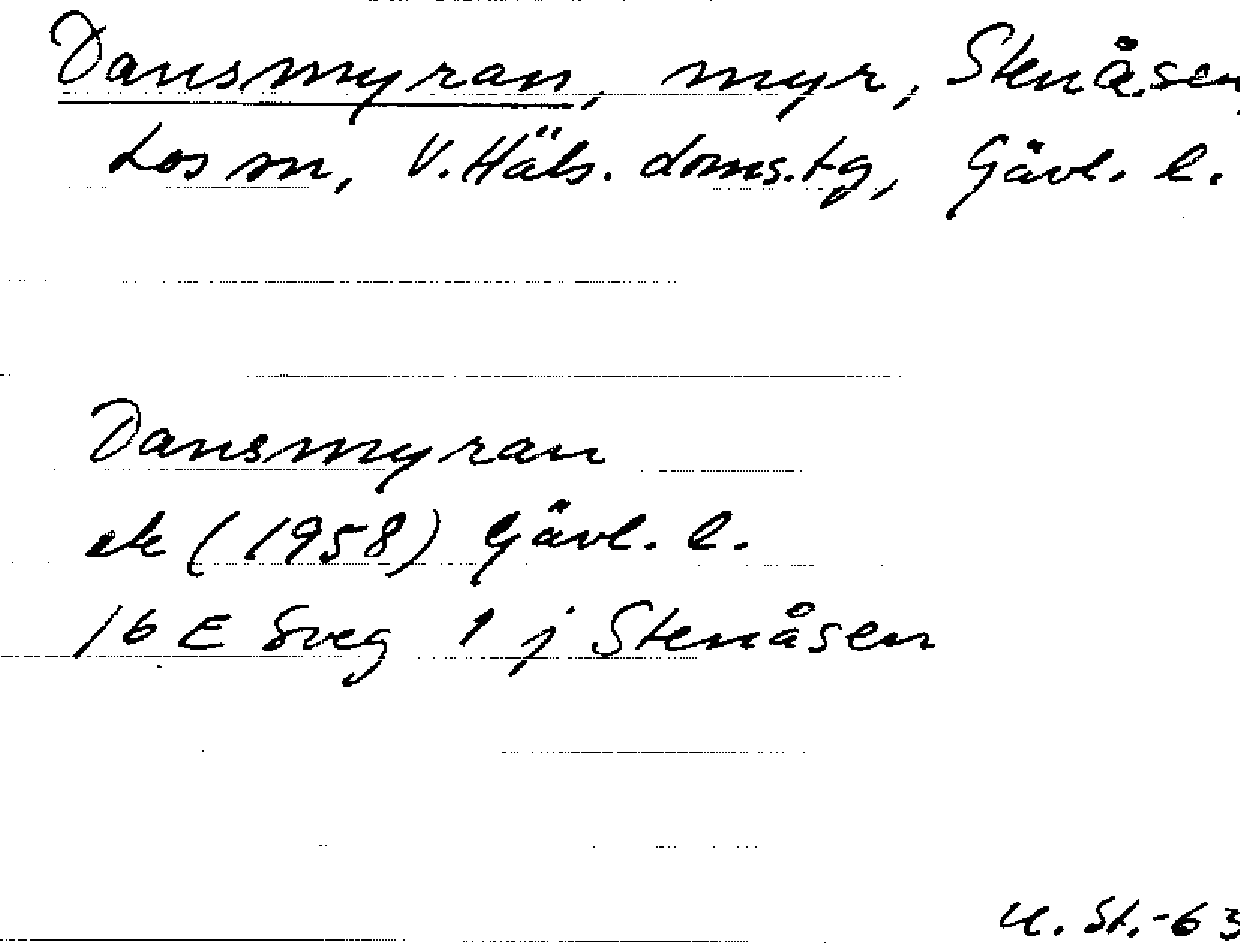 Dansmyran, myr, Stenåsen,
Los sn, V. Häls. doms.tg, Gävl. l.
Dansmyran
ek (1958) Gävl. l.
16 E Sveg 1 j Stenåsen
U. St.-63